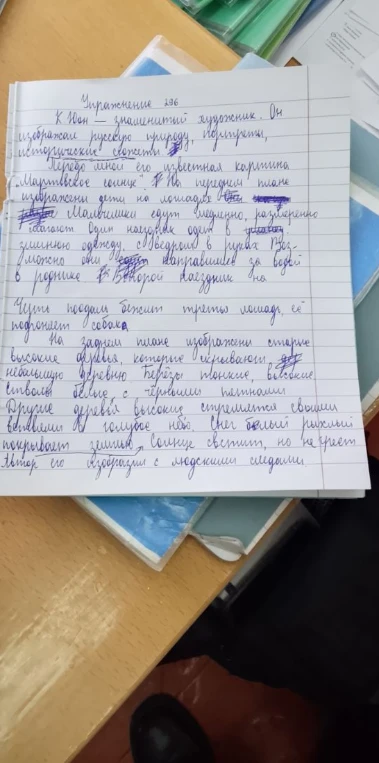 Упражнение 296
К Юон — знаменитый художник. Он
изображал русскую природу, портреты,
исторические сюжеты
Передо мной его известная картина
Мартовское солнце. На переднем плане
изображены дети на лошадях
Мальчишки едут медленно, размеренно
шагают Один наездник одет в
зимнюю одежду, с ведром в руках Воз-
можно они направились за водой
в роднике. Второй наездник на
Чуть поодаль бежит третья лошадь, её
подгоняет собака
На заднем плане изображены старые
высокие деревья, которые скрывают
небольшую деревню Берёзы тонкие, высокие
стволы белые, с чёрными пятнами
Другие деревья высокие стремятся своими
ветвями в голубое небо. Снег белый рыхлый
покрывает землю, Солнце светит, но не греет
Автор его изобразил с людскими следами